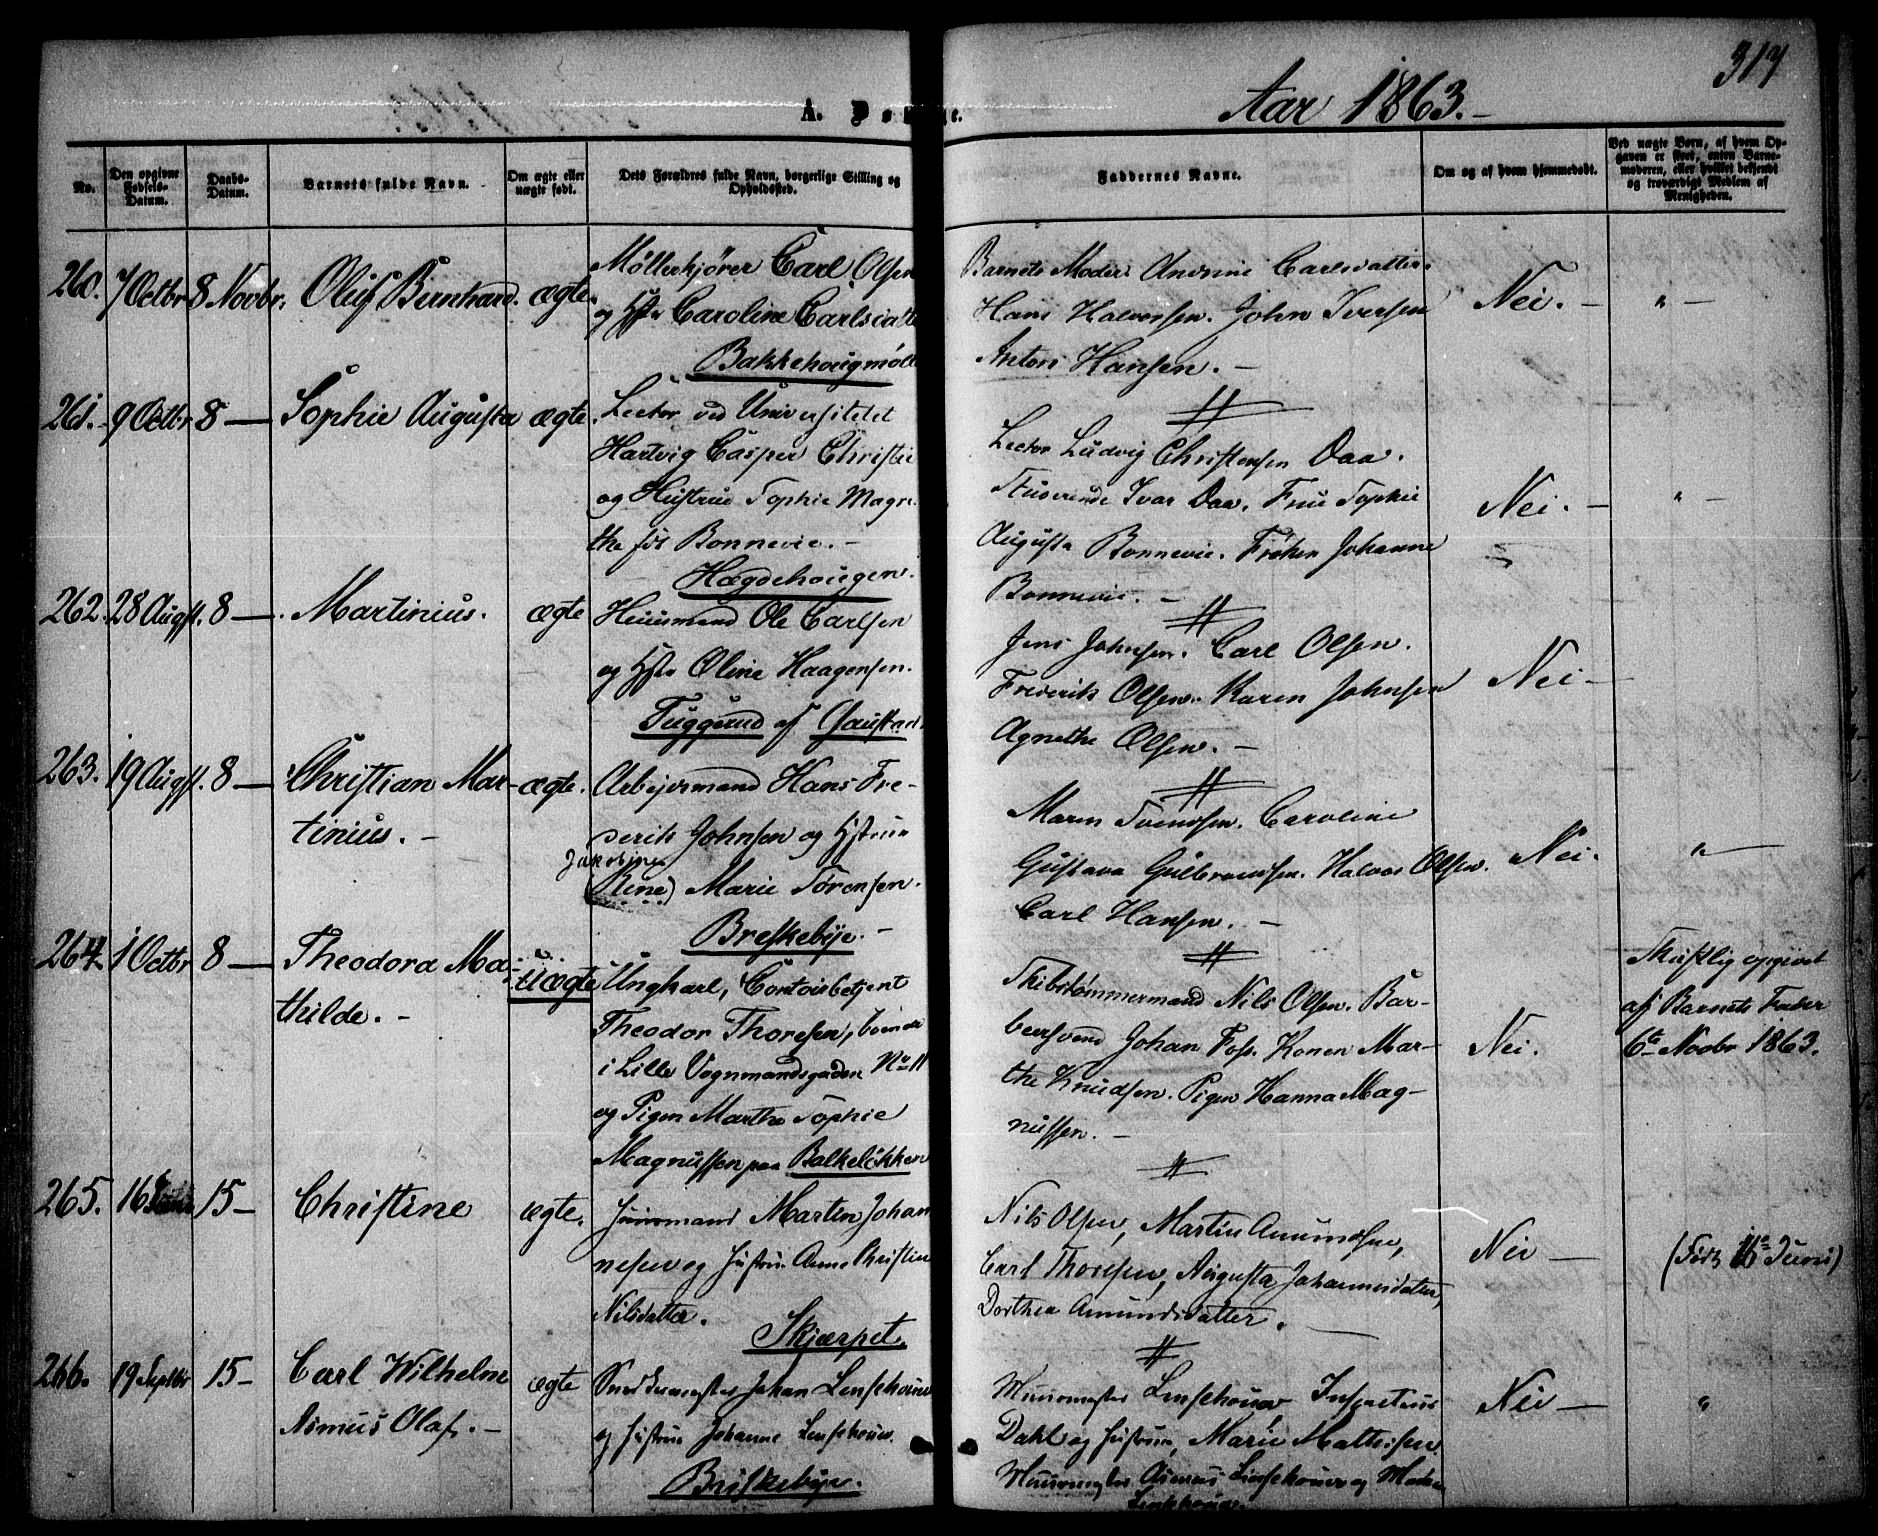 317
Aar 1863.
A.
No.
Den opgivne Fødsels-Datum.
Daabs-Datum.
Barnets fulde Navn.
Om ægte eller uægte født.
Dets Forældres fulde Navn, borgerlige Stilling og Opholdssted.
Faddernes Navne.
Om og af hvem hjemmedøbt.
Ved uægte Børn, af hvem Opgaven er skeet, enten Barnemoderen, eller hvilket bekjendt og troværdigt Medlem af Menigheden.
260. 7 Octbr 8 Novbr. Oluf Bernhard. ægte.
Møllerkjører Carl Olsen
og Hstr Caroline Carlsdatte
Bakkehougmøll
Barnets Moder Andrine Carlsdatter.
Hans Halvorsen. John Iversen
Anton Hansen. -
Nei. - " -
261. 9 Octbr 8 - Sophie Augusta ægte.
Lector ved Universitetet
Hartvig Casper Christie
og Hustrue Sophie Magre
the fød Bonnevie. -
Hægdehougen.
Lector Ludvig Christensen Daa.
Studerende Ivar Daa. Frue Sophie
Augusta Bonnevie. Frøken Johanne
Bonnevie. -
Nei. - " -
262. 28 Augst. 8 - Martinius. ægte
Huusmand Ole Carlsen
og Hstr Oline Haagensen.
Tuggerud af Gaustad
Jens Johnsen. Carl Olsen.
Frederik Olsen. Karen Johnsen
Agnethe Olsen. -
Nei -
263. 19 Augst. 8 - Christian Mar-
tinius. -
ægte.
Arbejdsmand Hans Fre-
derik Johnsen og Hstrue
Jakobine
(Rine) Marie Sørensen.
Breskebye. -
Maren Svendsen. Caroline
Gustava Gulbrandsen. Halvor Olsen.
Carl Hansen. -
Nei. " -
264. 1 Octbr 8 - Theodora Ma-
thilde. -
uægte
Ungkarl, Contoirbetjent
Theodor Thoresen, boende
i Lille Vognmandsgaden No 11
og Pigen Marthe Sophie
Magnussen paa Balkeløkken
Skibstømmermand Nils Olsen. Bar-
beersvend Johan Foss. Konen Mar-
the Knudsen. Pigen Hanna Mag-
nussen. -
Nei.
Skriftlig opgivet
af Barnets Fader
6te Novbr 1863.
265. 16 Juni 15 - Christine ægte.
Huusmand Martin Johan
nesen og Hustru Anne Christin
Nilsdatter.
Skjærpet.
Nils Olsen, Martin Amundsen,
Carl Thoresen, Augusta Johannesdatter,
Dorthea Amundsdatter.
Nei -
(Født 16de Juni)
266. 19 Septbr 15 - Carl Wilhelm
Asmus Olaf. -
ægte
Snedkermester Johan Lenschouw
og Hustrue Johanne Lenschouw.
Briskebye.
Muurmester Lenschouw Inspecteur
Dahl og Hustrue, Marie Mathisen
Muurmester Asmus Lenschouw og Madm
Lenschouw.
Nei - "